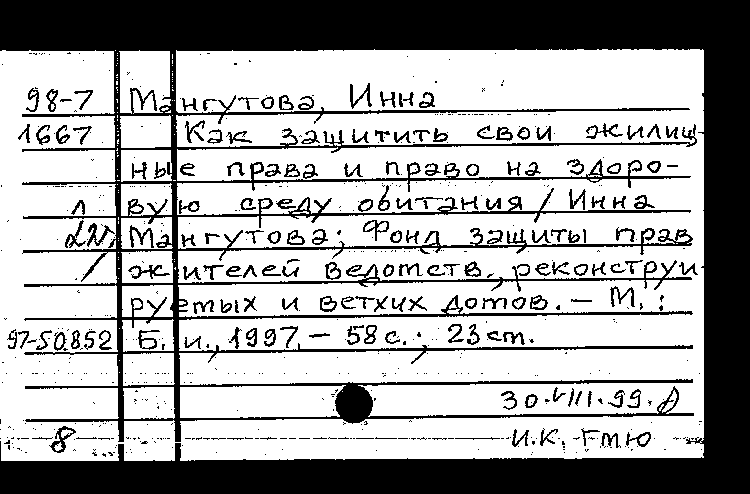 98-7 Мангутова, Инна
1667 Как защитить свои жилищ-
ные права и право на здоро-
вую среду обитания / Инна
Мангутова; Фонд защиты прав
жителей ведотств., реконструи-
руемых и ветхих домов. – М.:
97-50.852 Б. и., 1997. – 58 с.; 23 см.
30.VIII.99.
8 И.К. ГМЮ